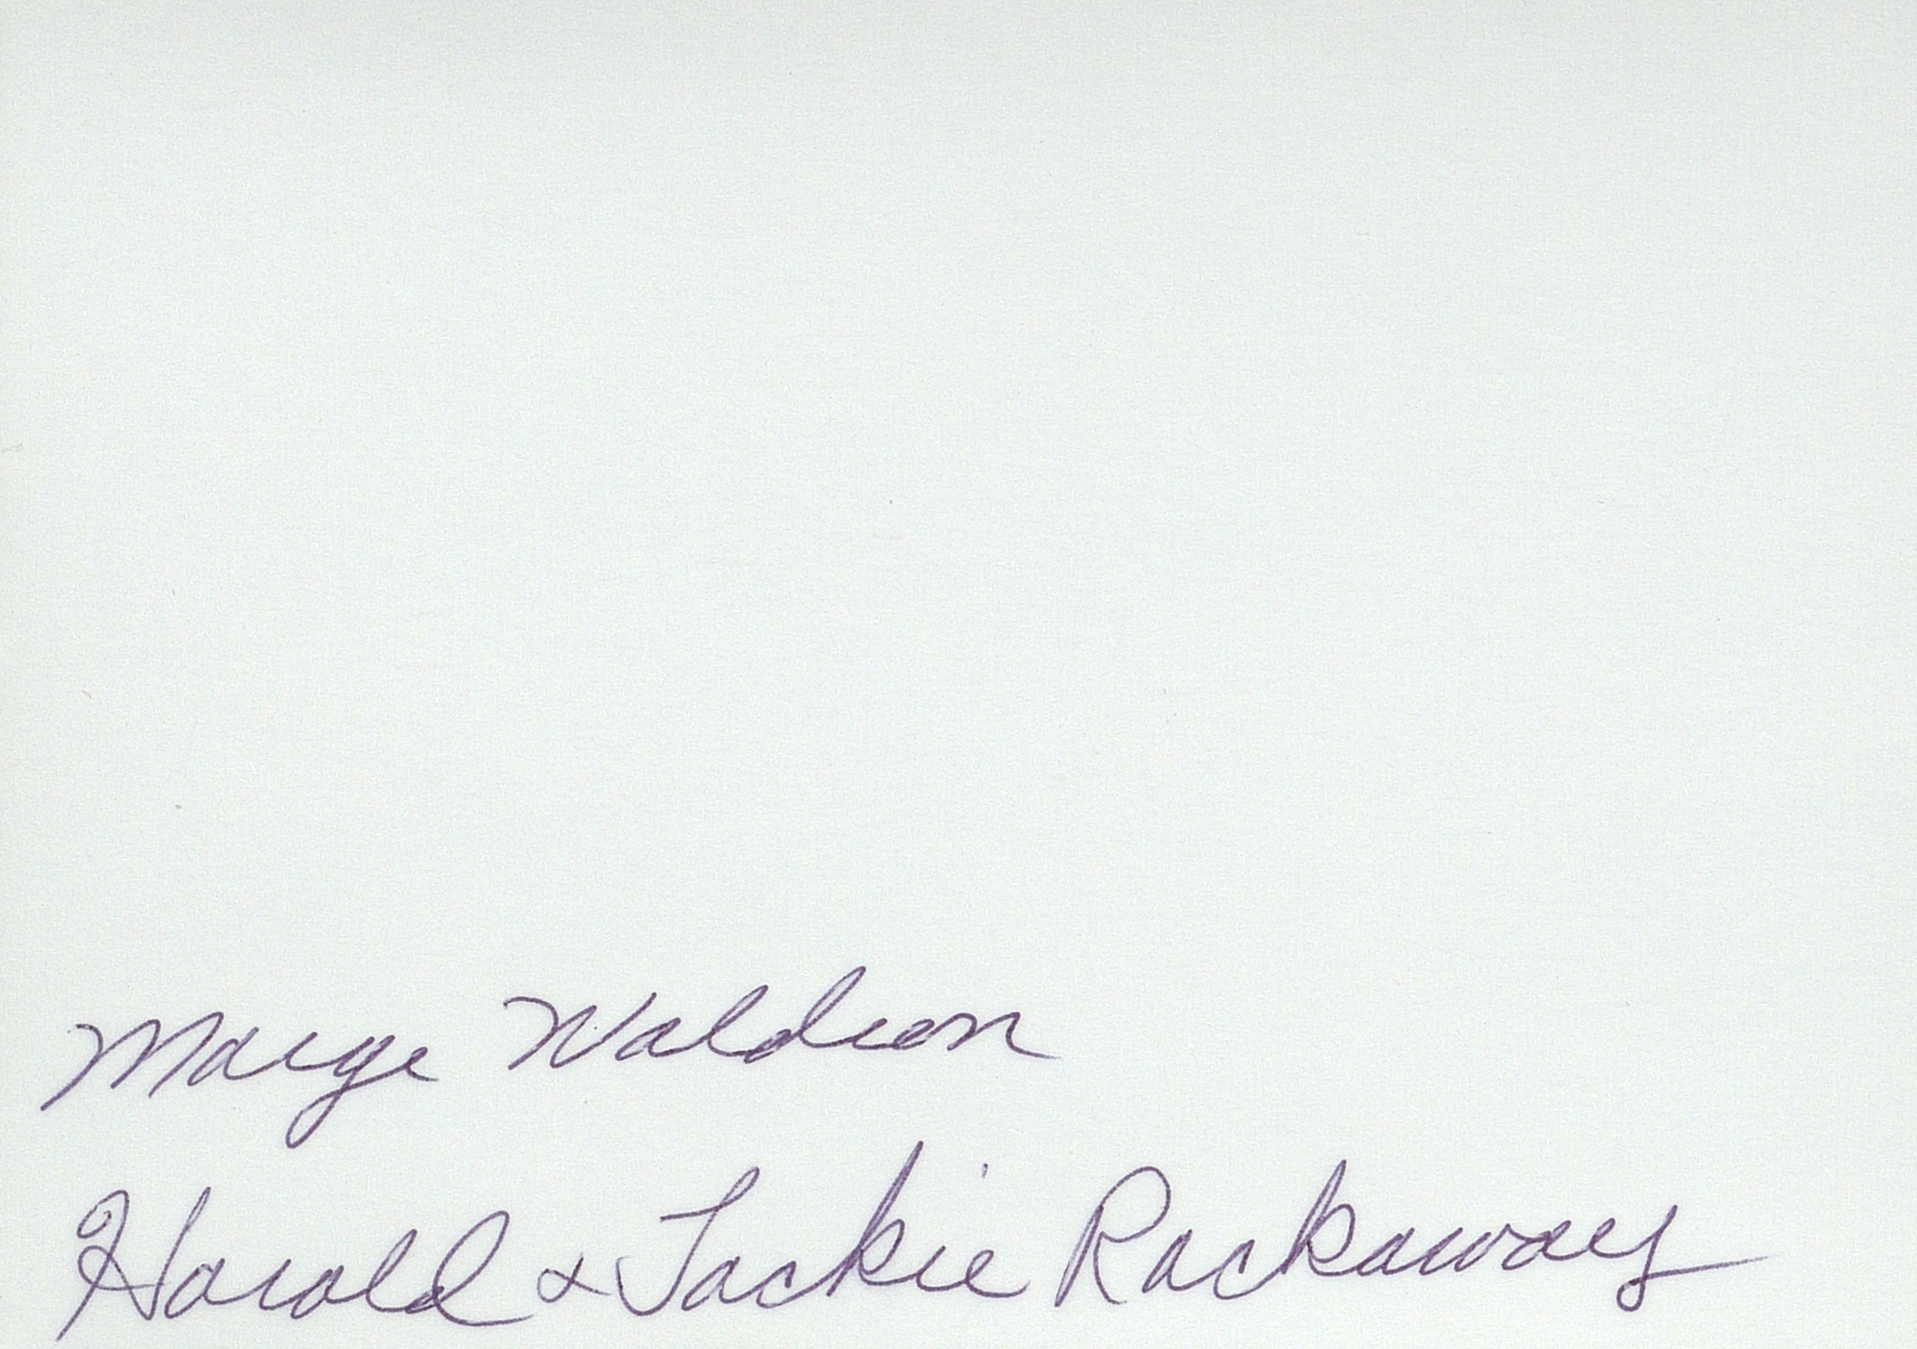 Marge Waldron
Harold & Jackie Rockaway